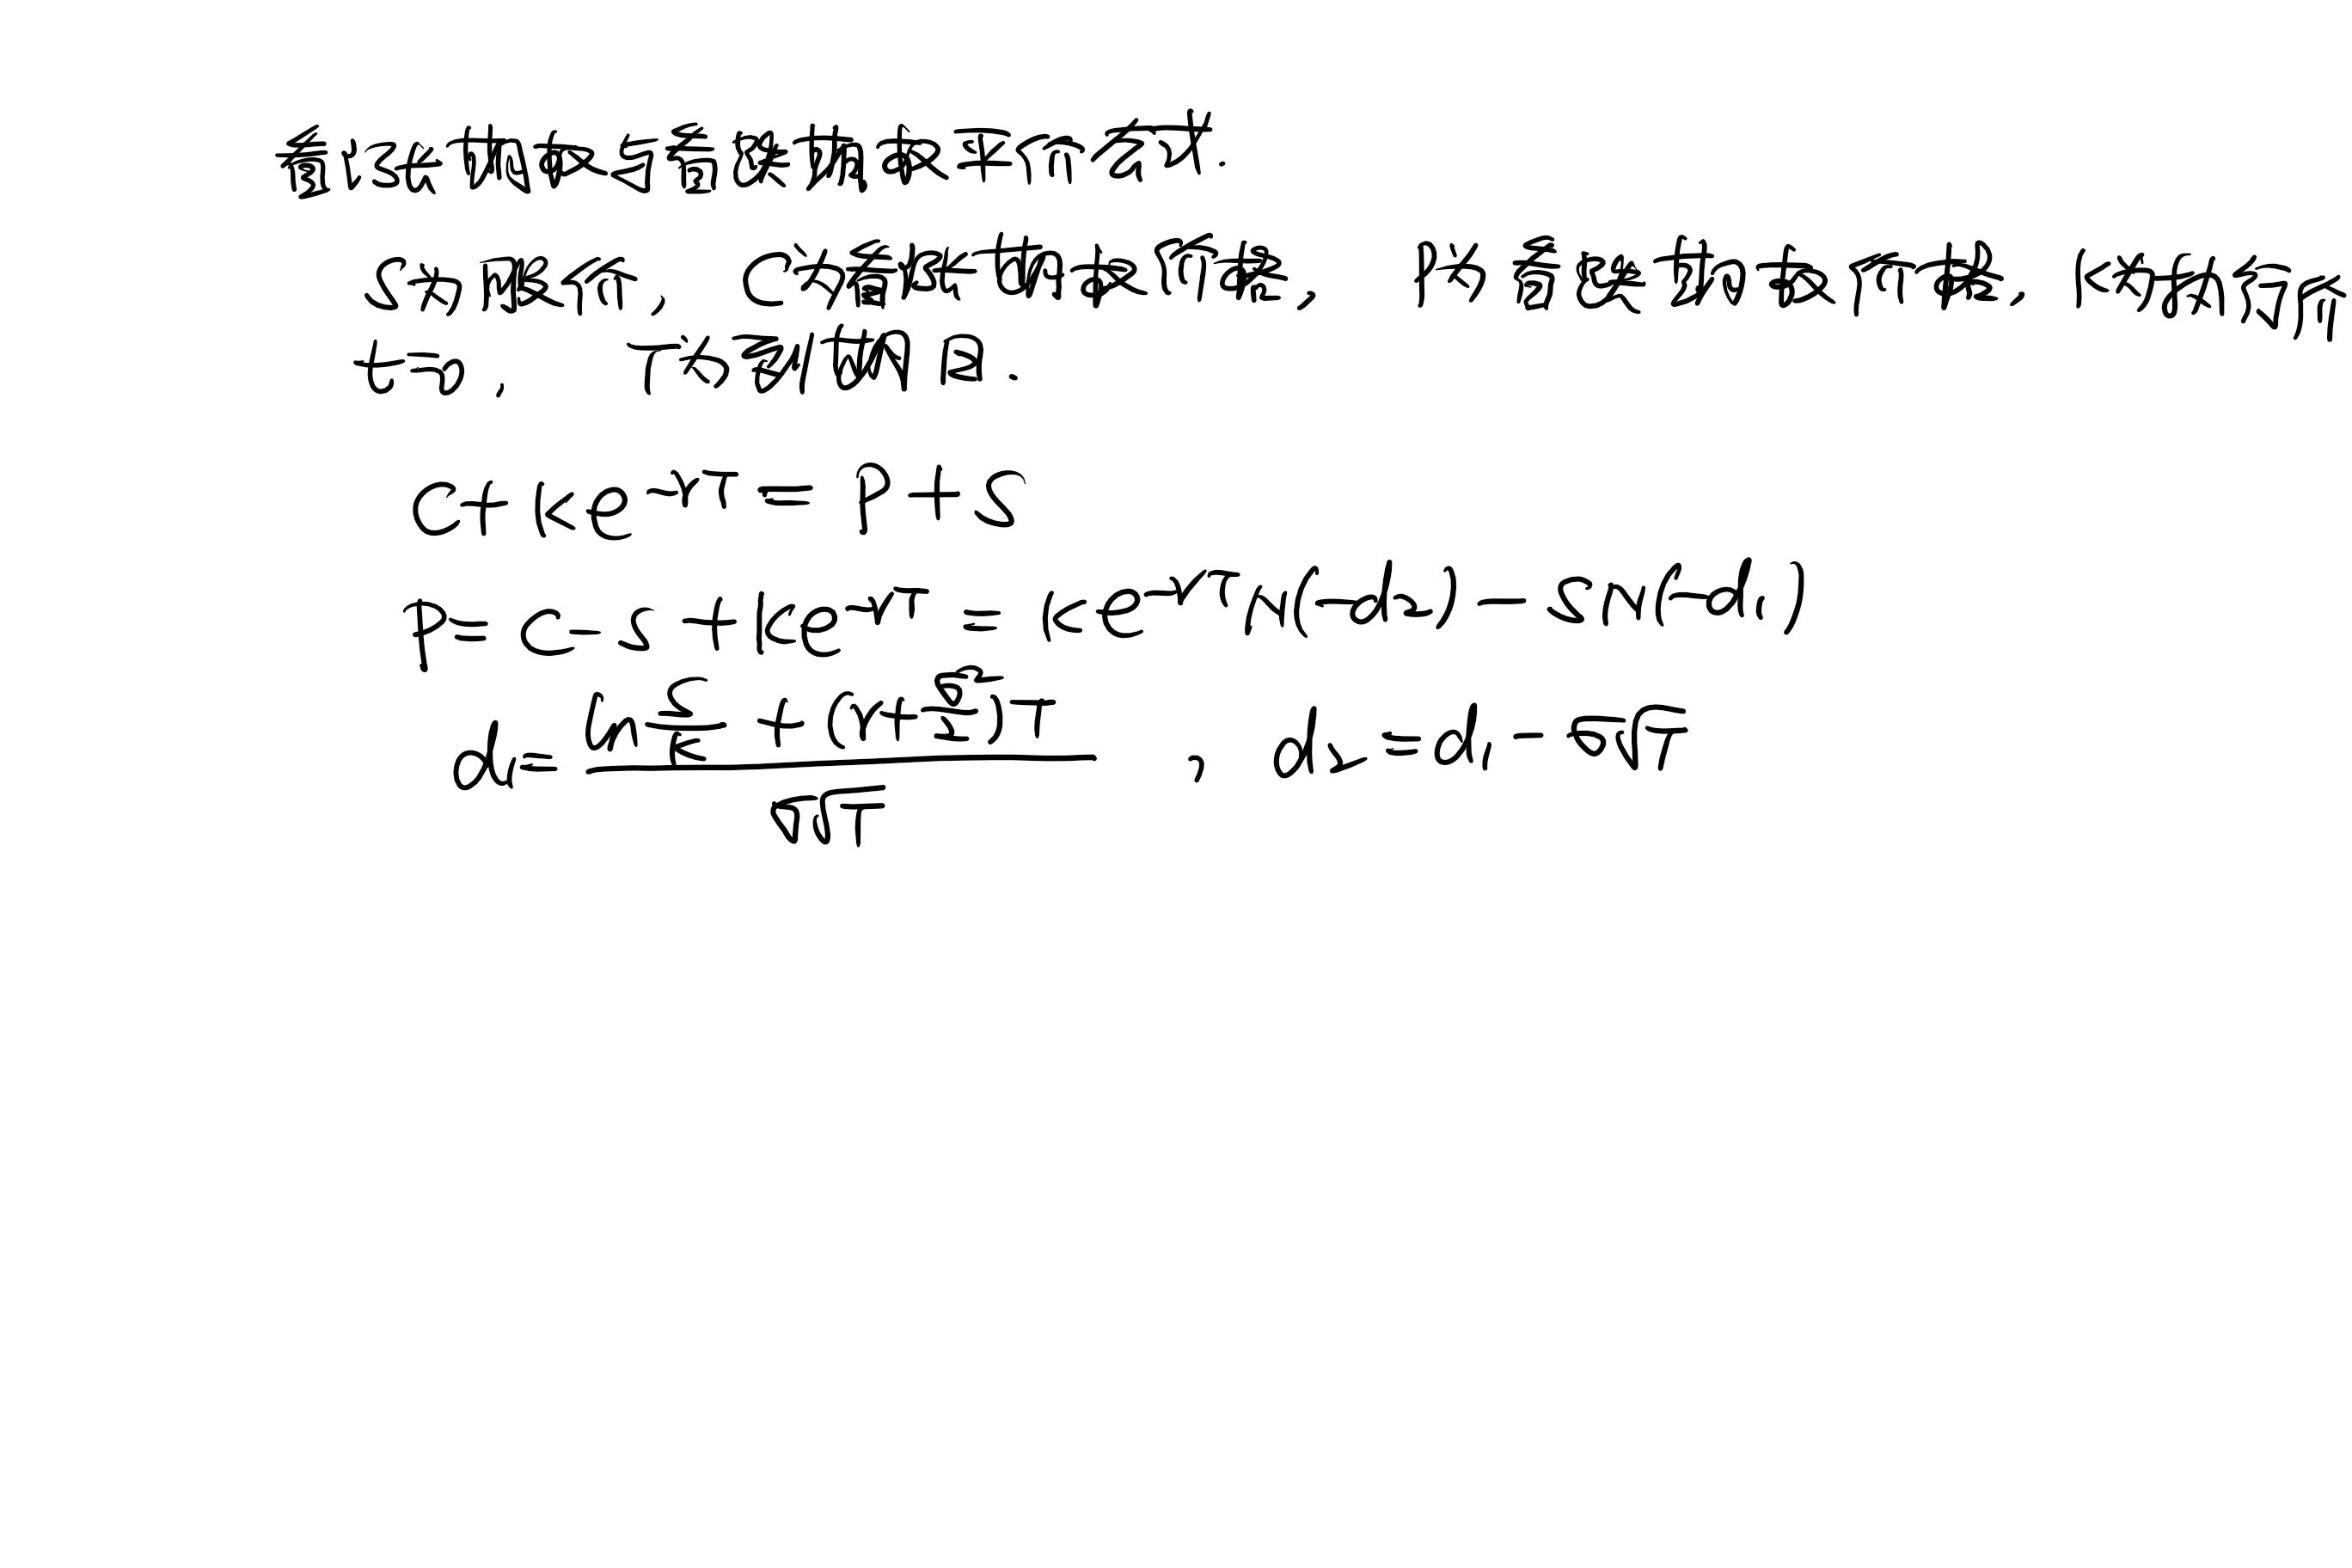 看涨期权与看跌期权平价公式.
S为股价, C为看涨期权价格, P为看跌期权价格, K为期权行
t为, T为到期日.
C+Ke^{-rT}=P+S
P=C-S+Ke^{-rT}=Ke^{-rT}N(-d₂)-SN(-d₁)
d₁=\frac{ln\frac{S}{K}+(r+\frac{σ^2}{2})T}{σ\sqrt{T}}, d₂=d₁-σ\sqrt{T}